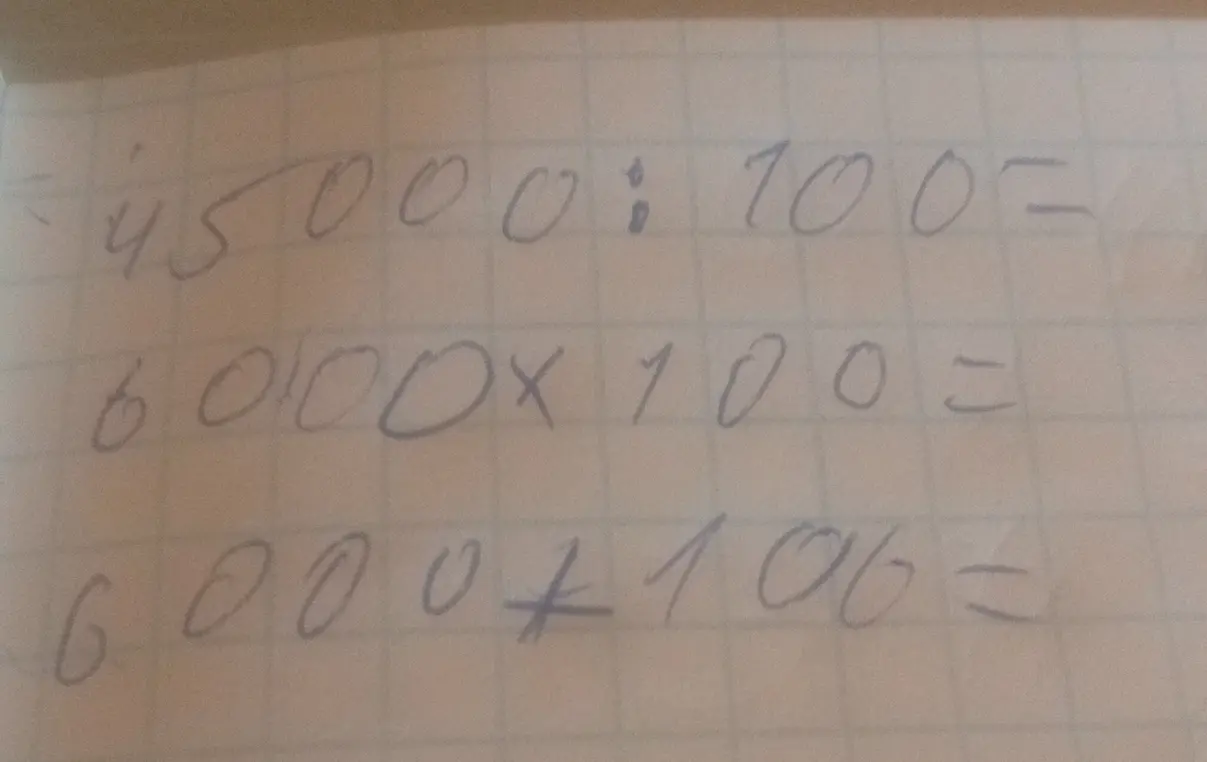 45000:100=
6000×100=
6000+100=